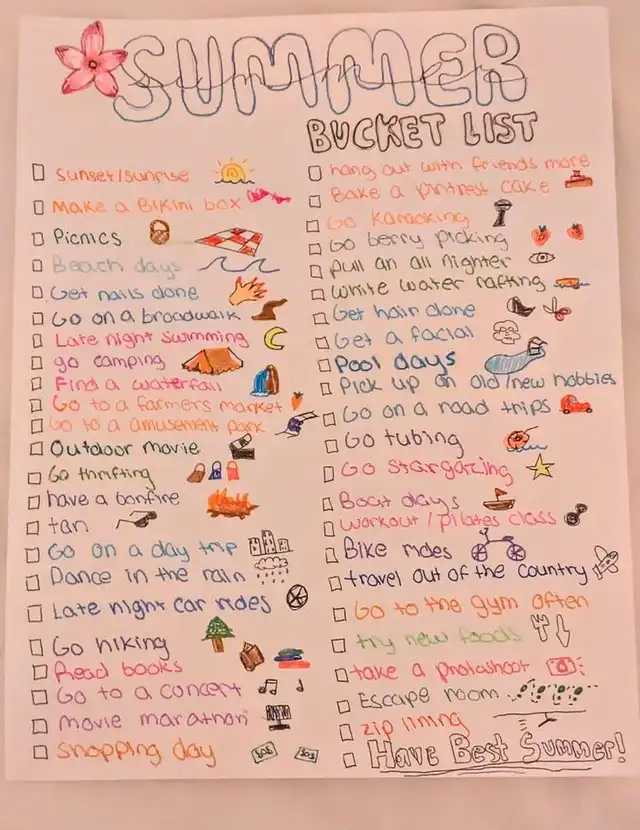 SUMMER
BUCKET LIST
Sunset/sunrise
Make a Bikini box
Picnics
Beach days
Get nails done
Go on a broadwalk
Late night swimming
go camping
Find a waterfall
Go to a farmers market
Go to a amusement park
Outdoor movie
Go thrifting
have a bonfire
tan
Go on a day trip
Dance in the rain
Late night car rides
Go hiking
Read books
Go to a concert
movie marathon
Shopping day
hang out with friends more
Bake a pintrest cake
Go karaoking
Go berry picking
pull an all nighter
White water rafting
Get hair done
Get a facial
Pool days
Pick up an old/new hobbies
Go on a road trips
Go tubing
Go stargazing
Boat days
workout/pilates class
Bike rides
travel out of the country
Go to the gym often
try new foods
take a photoshoot
Escape room
zip lining
Have Best Summer!